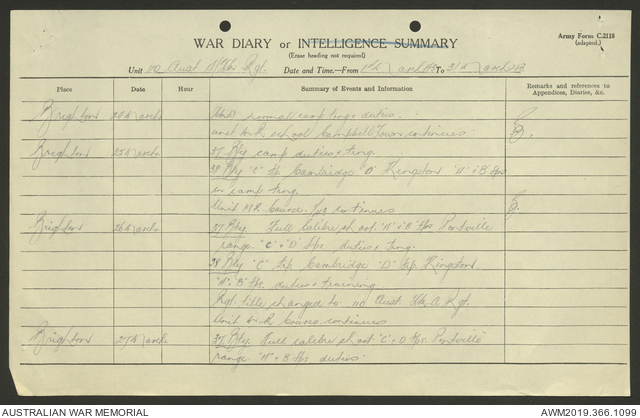 Army Form C.2118
(adapted.)
WAR DIARY or INTELLIGENCE SUMMARY
(Erase heading not required)
Unit 110 Aust Rgt. Date and Time.—From 1st March 43 To 31st March 43
Place Date Hour Summary of Events and Information Remarks and references to Appendices, Diaries, &c.
Brighton 24th March normal camp trng & duties.
unit school Campbell Town continues
Brighton 25th March 37 Bty camp duties & trng.
38 Bty "C" Tp Cambridge "D" Kingston "A" & B Tps
in camp trng.
Unit Course continues
Brighton 26th March 37 Bty Full calibre shoot "A" & B Tps Pontville
range. "C" & "D" Tps duties & trng.
38 Bty "C" Trp Cambridge "D" Trp Kingston
"A" & "B" Tps. duties & training
Rgt title changed to 110 Aust Rgt.
Unit Course continues
Brighton 27th March 37 Bty Full calibre shoot "C" & D Tps. Pontville
range "A" & B Tps duties
AUSTRALIAN WAR MEMORIAL
AWM2019.366.1099